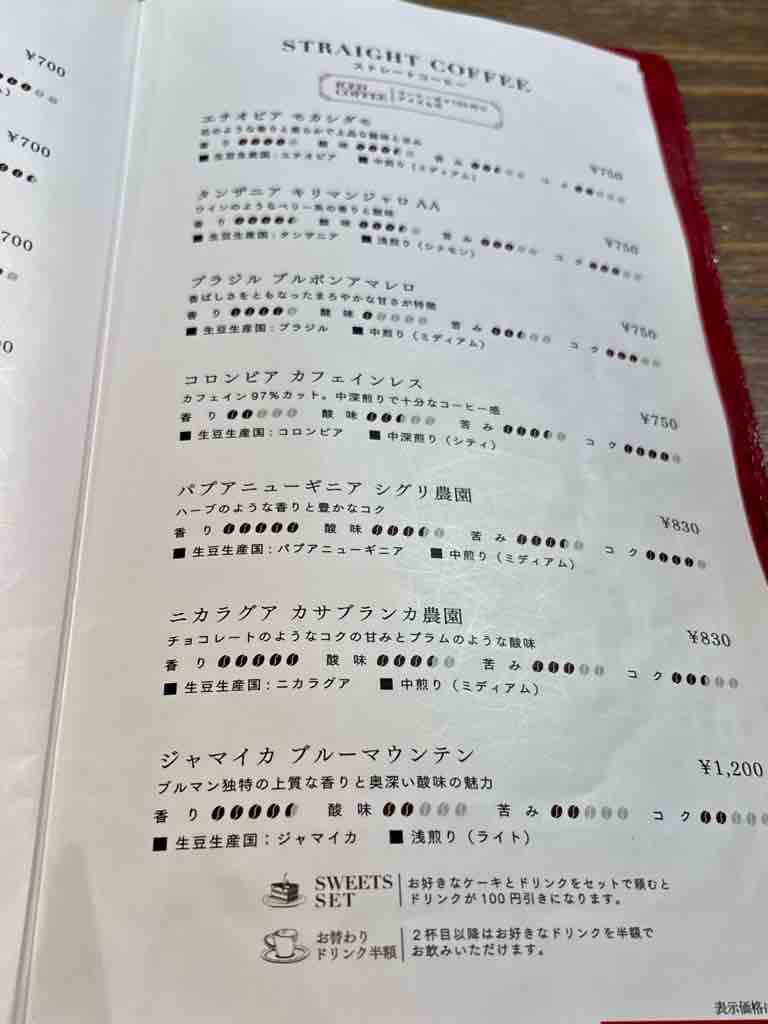 ¥700
¥700
700
STRAIGHT COFFEE
ストレートコーヒー
ICED COFFEE
エチオピア モカシダモ
¥750
花のような香りと柔らかで上品な酸味と甘み
香り 酸味 苦み コク
■ 生豆生産国:エチオピア ■ 中煎り(ミディアム)
タンザニア キリマンジャロ AA
¥750
ワインのようなベリー系の香りと酸味
香り 酸味 苦み コク
■ 生豆生産国:タンザニア ■ 浅煎り(シナモン)
ブラジル ブルボンアマレロ
¥750
香ばしさをともなったまろやかな甘さが特徴
香り 酸味 苦み コク
■ 生豆生産国:ブラジル ■ 中煎り(ミディアム)
コロンビア カフェインレス
¥750
カフェイン97%カット。中深煎りで十分なコーヒー感
香り 酸味 苦み コク
■ 生豆生産国:コロンビア ■ 中深煎り(シティ)
パプアニューギニア シグリ農園
¥830
ハーブのような香りと豊かなコク
香り 酸味 苦み コク
■ 生豆生産国:パプアニューギニア ■ 中煎り(ミディアム)
ニカラグア カサブランカ農園
¥830
チョコレートのようなコクの甘みとプラムのような酸味
香り 酸味 苦み コク
■ 生豆生産国:ニカラグア ■ 中煎り(ミディアム)
ジャマイカ ブルーマウンテン
¥1,200
ブルマン独特の上質な香りと奥深い酸味の魅力
香り 酸味 苦み コク
■ 生豆生産国:ジャマイカ ■ 浅煎り(ライト)
SWEETS SET
お好きなケーキとドリンクをセットで頼むと
ドリンクが100円引きになります。
お替わり
ドリンク半額
2杯目以降はお好きなドリンクを半額で
お飲みいただけます。
表示価格は